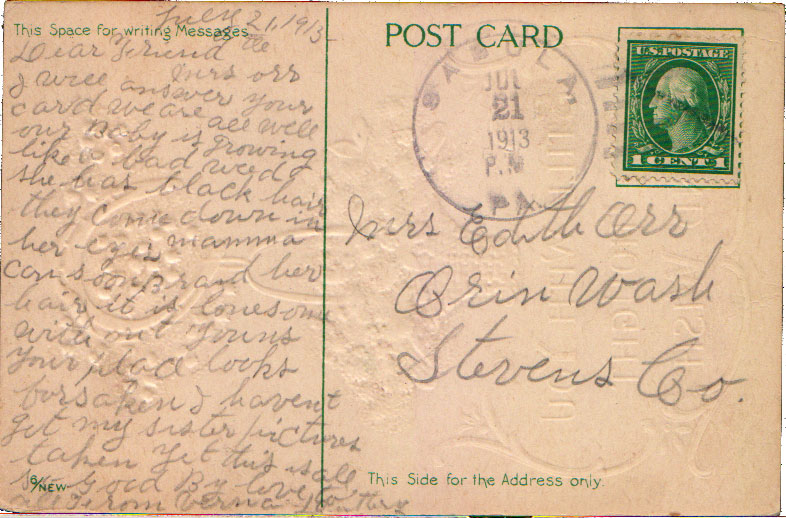 This Space for writing Messages.
July 21, 1913
Dear Friend
Mrs Orr
I will answer your
card we are all well
our Baby is growing
like a bad weed
she has black hair
they come down in
her eyes mamma
can soon Braid her
hair it is lonesome
with out youns
Your place looks
forsaken I havent
got my sister pictures
taken yet this is all
Good By love to
all From Verna
6/NEW
POST CARD
SABULA
JUL
21
1913
P.M.
PA.
U.S. POSTAGE
1 CENT 1
Mrs Edith Orr
Orin Wash
Stevens Co.
This Side for the Address only.